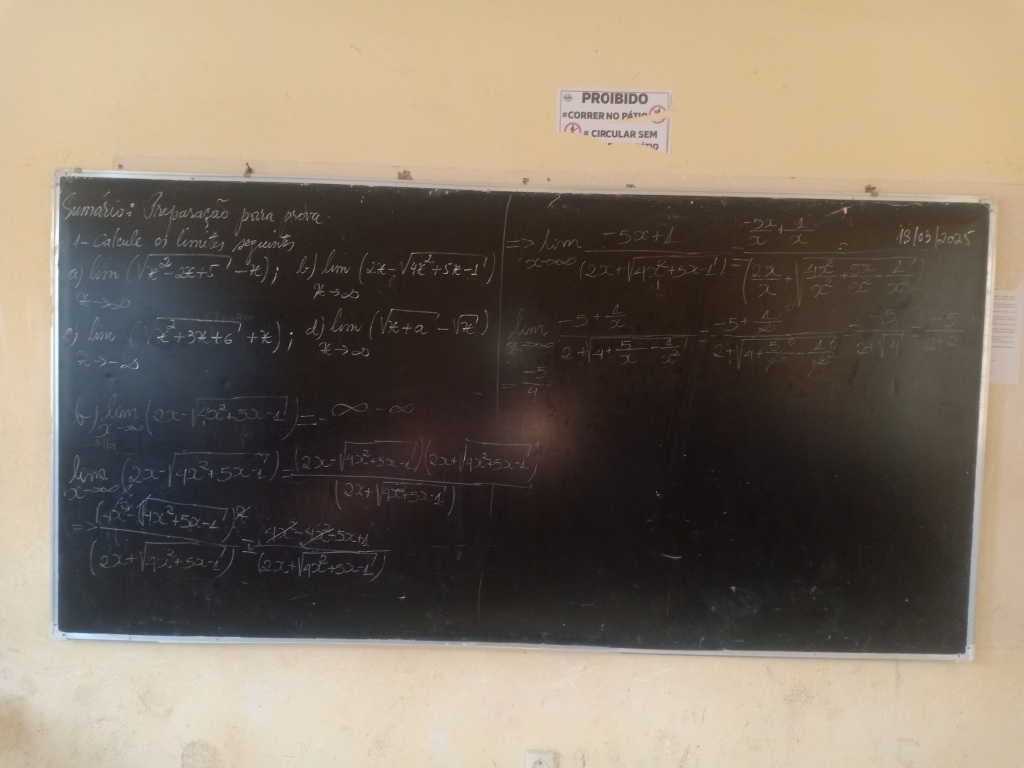 PROIBIDO
#CORRER NO PÁTIO
# CIRCULAR SEM
Sumário: Preparação para prova.
1- Calcule os limites seguintes
a) lim (√(x²-2x+5) - x); b) lim (2x - √(4x²+5x-1))
x→∞ x→∞
c) lim (√(x²+3x+6) + x); d) lim (√(x+a) - √x)
x→-∞ x→∞
b) lim (2x - √(4x²+5x-1)) = ∞ - ∞
x→∞
lim (2x - √(4x²+5x-1)) = (2x - √(4x²+5x-1))(2x + √(4x²+5x-1))
x→∞ (2x + √(4x²+5x-1))
=> (4x² - (√(4x²+5x-1))² = 4x² - 4x² - 5x + 1
(2x + √(4x²+5x-1)) (2x + √(4x²+5x-1))
18/03/2025
=> lim -5x+1 -5x/x + 1/x
x→∞ (2x + √(4x²+5x-1)) = (2x/x + √(4x²/x² + 5x/x² - 1/x²))
lim -5 + 1/x = -5 + 1/∞ = -5 = -5
x→∞ 2 + √(4 + 5/x - 1/x²) 2 + √(4 + 5/∞ - 1/∞) 2 + √4 2+2
= -5/4